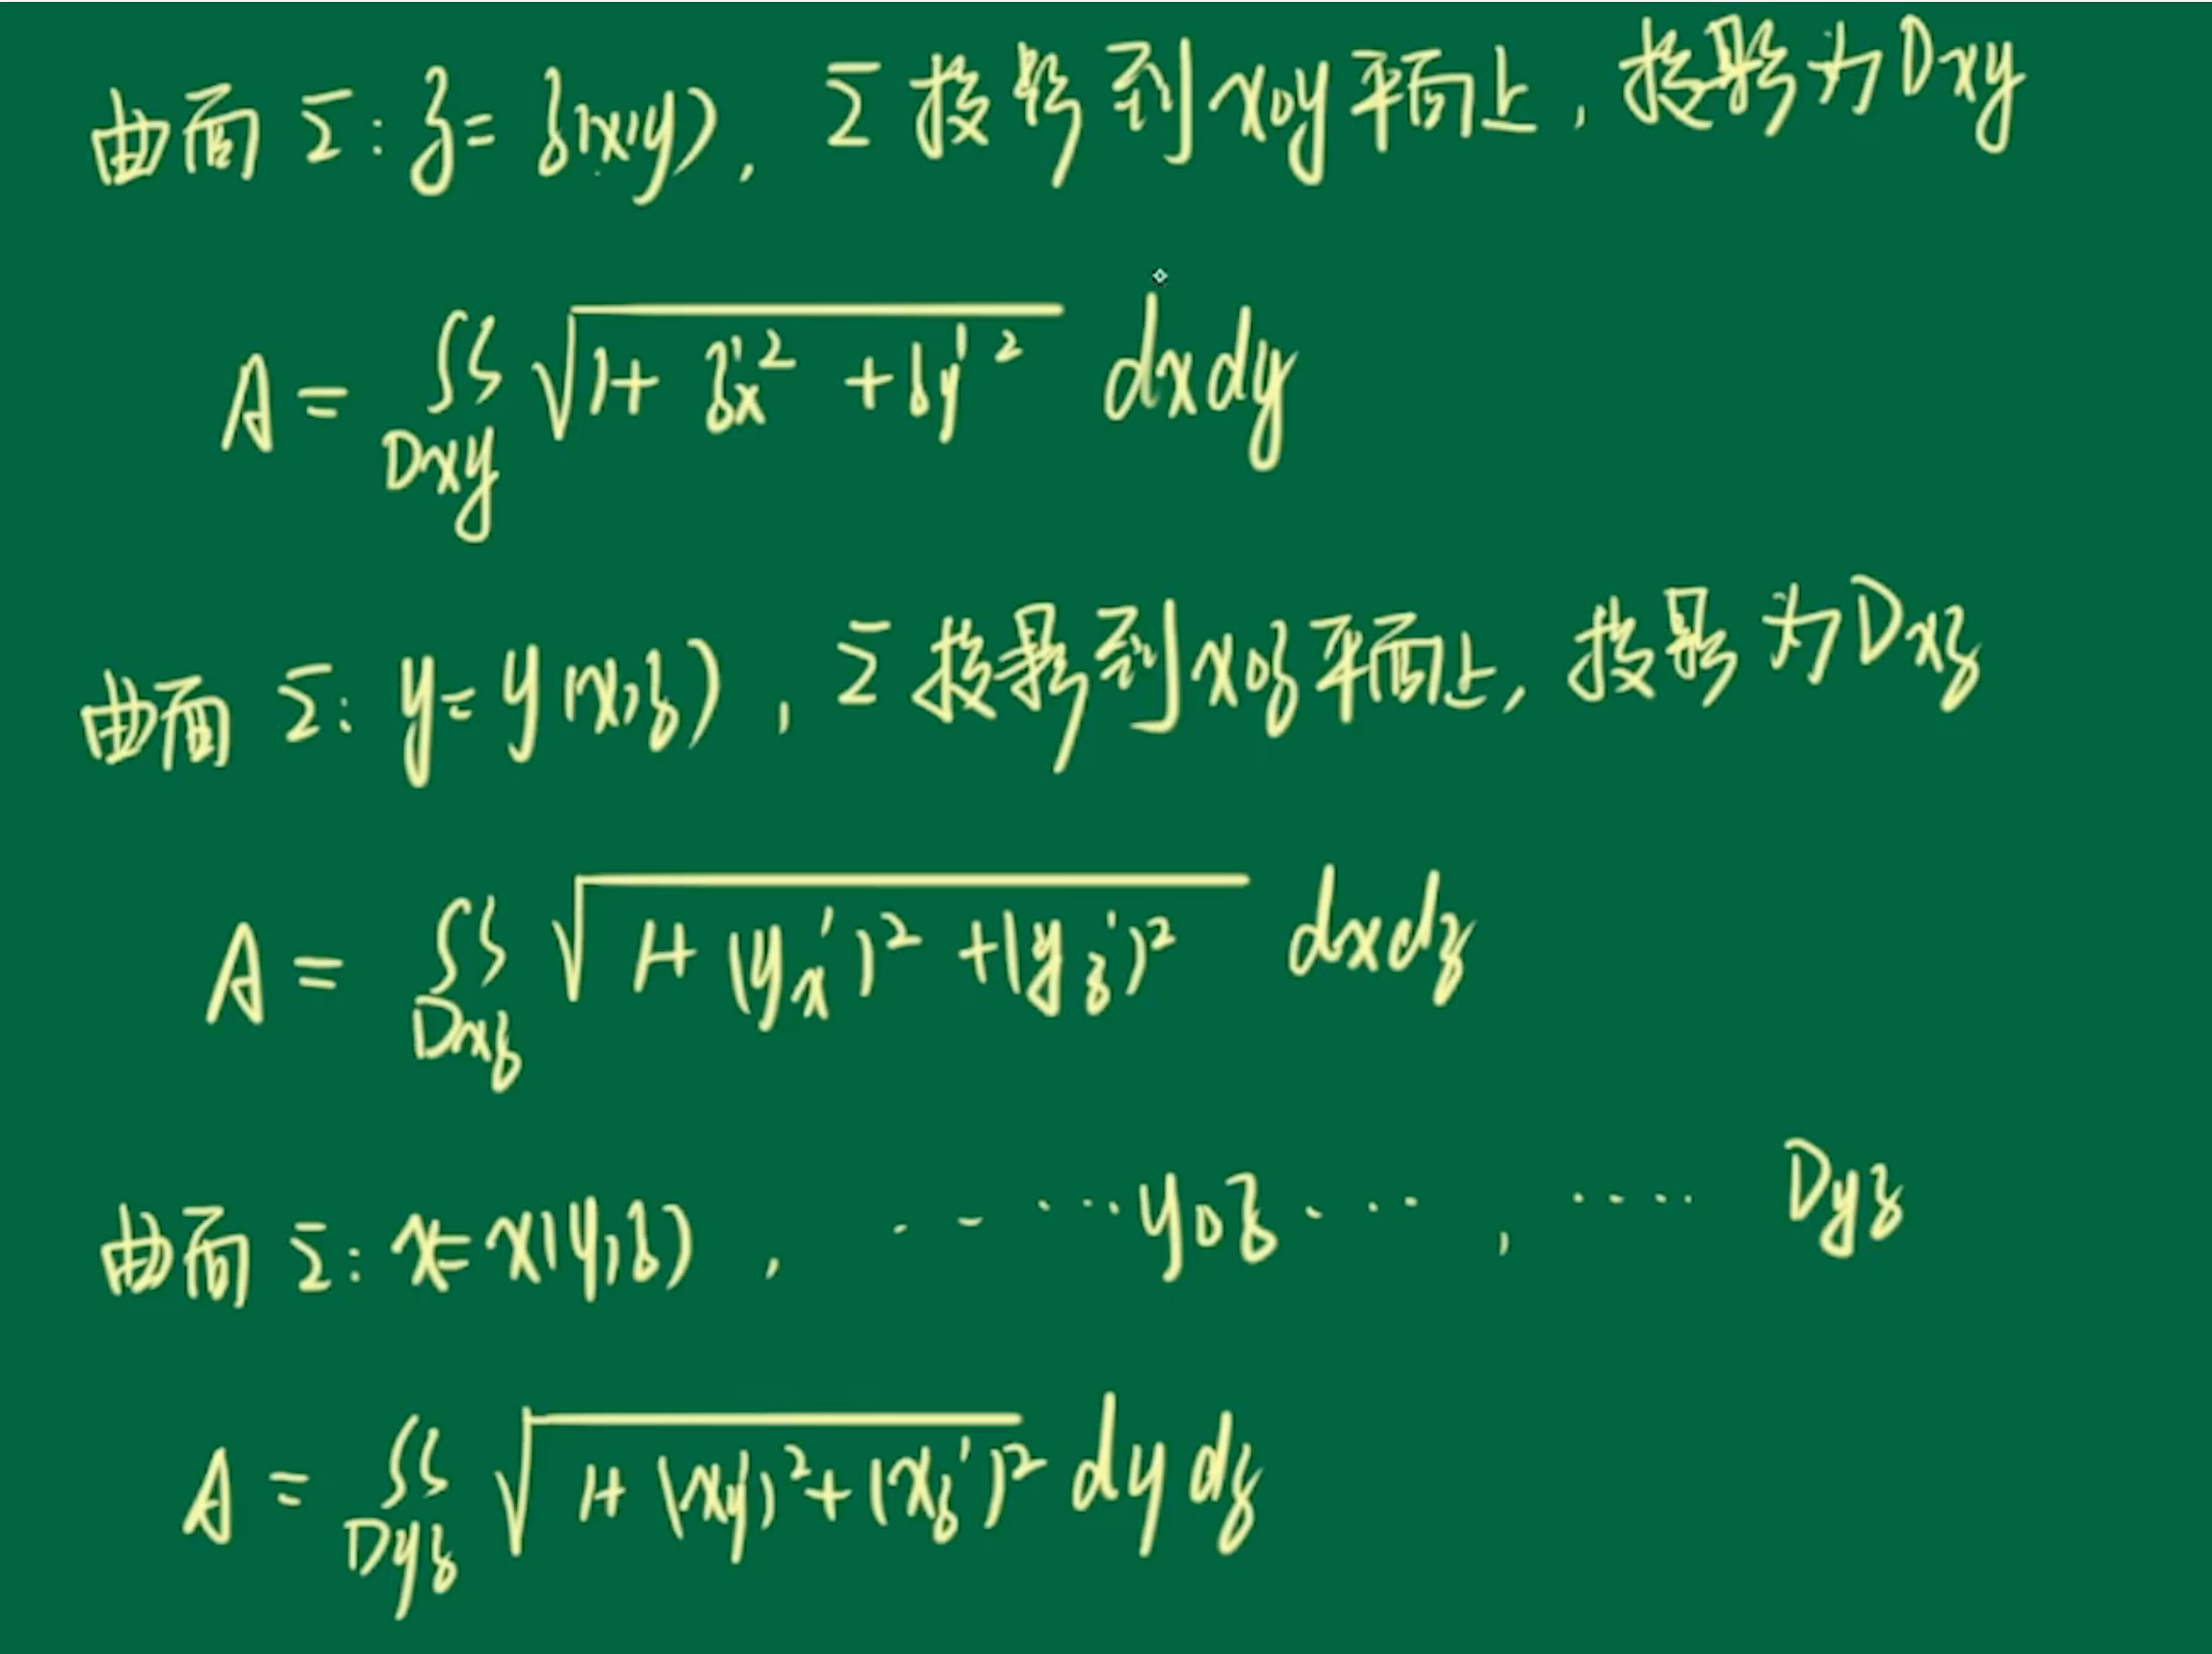 曲面 Σ: z = z(x,y), Σ投影到xoy平面上, 投影为Dxy
A = ∬_{Dxy} √(1+ z'ₓ² + z'_y²) dxdy
曲面 Σ: y = y(x,z), Σ投影到xoz平面上, 投影为Dxz
A = ∬_{Dxz} √(1+ (y'ₓ)² + (y'_z)²) dxdz
曲面 Σ: x = x(y,z), ......yoz....., .... Dyz
A = ∬_{Dyz} √(1+ (x'_y)² + (x'_z)²) dydz